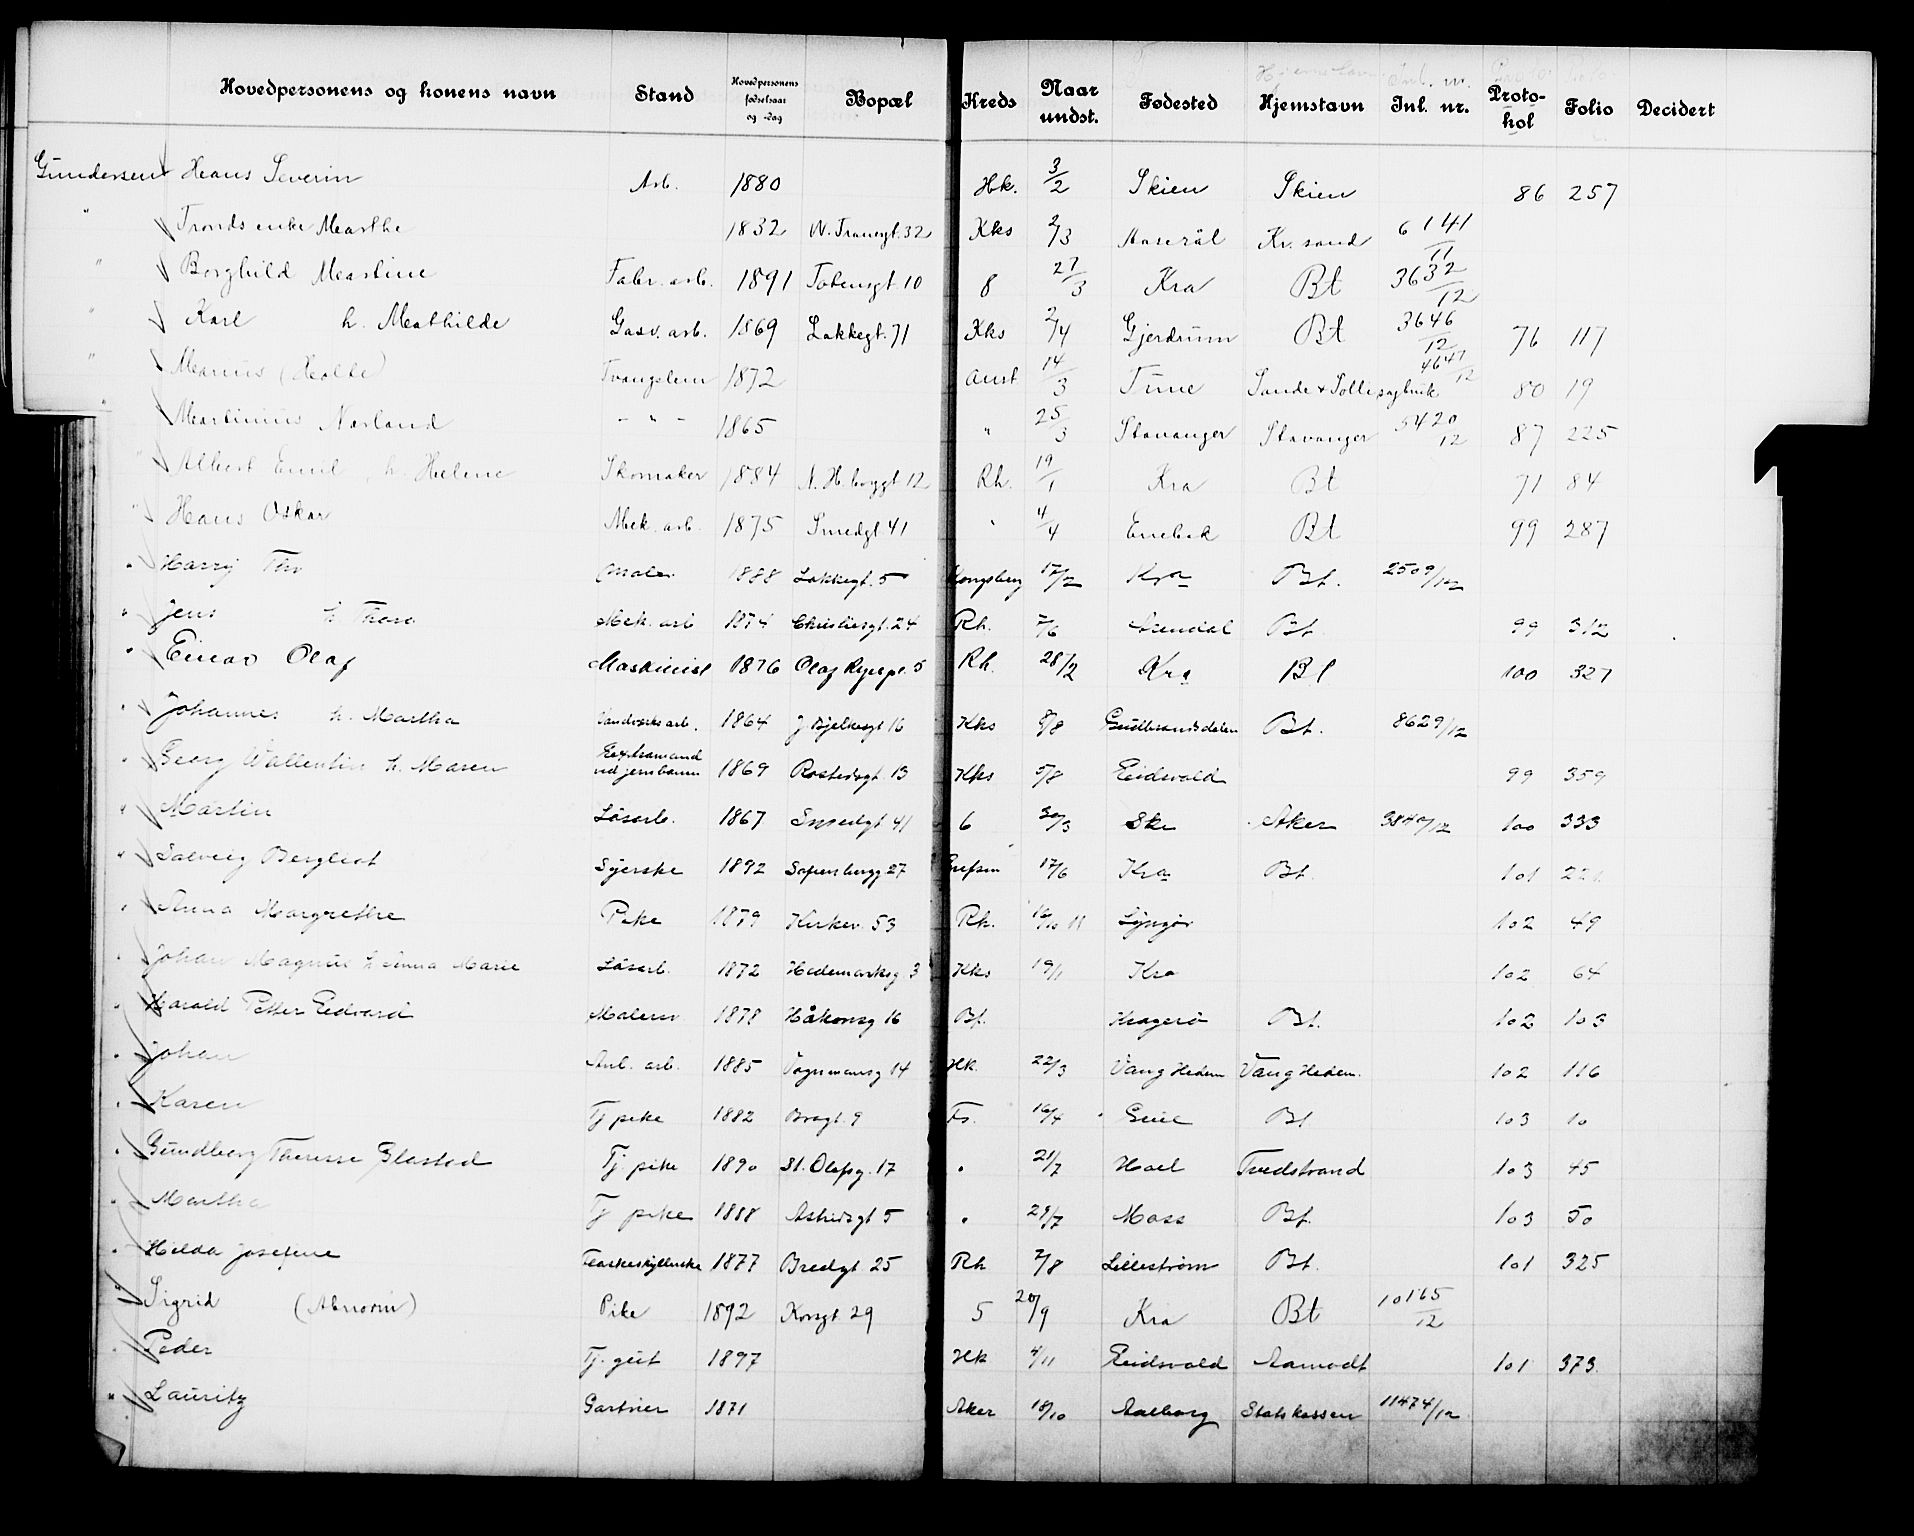 Hovedpersonens og konens navn Stand Hovedpersonens fødselsaar og -dag Bopæl Kreds Naar undst. Fødested Hjemstavn Jnl. nr. Proto-kol Folio Decidert
Gundersen Hans Severin Arb. 1880 Hk. 3/2 Skien Skien 86 257
" Tronds enke Marthe 1832 32 Kks 2/3 Aaseral Kr. sand 6141/11
" Borghild Martine Fabr. arb. 1891 Totensgt 10 8 27/3 Kra Bt 3632/12
Karl h. Mathilde Gasv. arb. 1869 Lakkegt. 71 Kks 2/4 Gjerdrum Bt 3646/12 76 117
" Marius (Holde) Tvangslem 1872 Anst 14/3 Tune Sande + Sollis 4647/12 80 19
" Martinius Nærland - " - 1865 " 25/3 Stavanger Stavanger 5420/12 87 225
" Albert Emil, h. Helene Skomaker 1884 12 Rh. 19/1 Kra Bt 71 84
" Hans Oskar Mek. arb. 1875 Smedgt. 41 " 4/4 Enebak Bt 99 287
" Harry Thv Maler 1888 Lakkegt. 5 Kongsberg 17/2 Kra Bt. 2509/12
" Jens h. Thora Mek. arb 1874 Christiesgt. 24 Rh. 7/6 Arendal Bt. 99 312
" Einar Olaf Maskinist 1876 Olaf Ryespl. 5 Rh. 28/2 Kra Bt 100 327
" Johannes h. Martha Vandværksarb. 1864 J. Bjelkesgt 16 Kks 8/8 Gudbrandsdalen Bt. 8629/12
" Georg Wallentin h. Maren Extramand ved jernbanen 1869 Rostedsgt. 13 Kks 5/8 Eidsvold 99 359
" Martin Løsarb. 1867 Smedgt 41 6 30/3 Ske Aker 3840/12 100 333
" Solveig Bergliot Syerske 1892 Sofienbergg 27 Grefsen 17/6 Kra Bt. 101 221
" Anna Margrethe Pike 1879 Kirkev. 53 Rh. 16/10 11 Lyngør 102 49
" Johan Magnus h Anna Marie Løsarb. 1872 Hedemarksg 3 Kks 19/11 Kra 102 64
" Harald Petter Edvard Malersv 1878 Håkonsg 16 Bf. Kragerø Bt. 102 103
" Johan Anl. arb. 1885 Vognmansg 14 Hk. 22/3 Vang Hedem Vang Hedem. 102 116
" Karen Tj pike 1882 Bragt. 9 Fs. 16/4 Grue Bt 103 10
" Gundborg Therese Glastad Tj. pike 1890 St. Olafsg. 17 " 21/7 Holt Tvedstrand 103 45
" Martha Tj pike 1888 Astridsgt 5 " 29/7 Moss Bt. 103 50
" Hilda Josefine Flaskeskyllerske 1877 Bredgt 25 Rh 7/8 Lillestrøm Bt. 101 325
" Sigrid (Abnorm) Pike 1892 Korsgt 29 5 20/9 Kra Bt 10165/12
" Peder Tj. gut 1897 Hk 4/11 Eidsvold Aamodt 101 373.
" Lauritz Gartner 1871 Aker 18/10 Aalborg Statskassen 11474/12